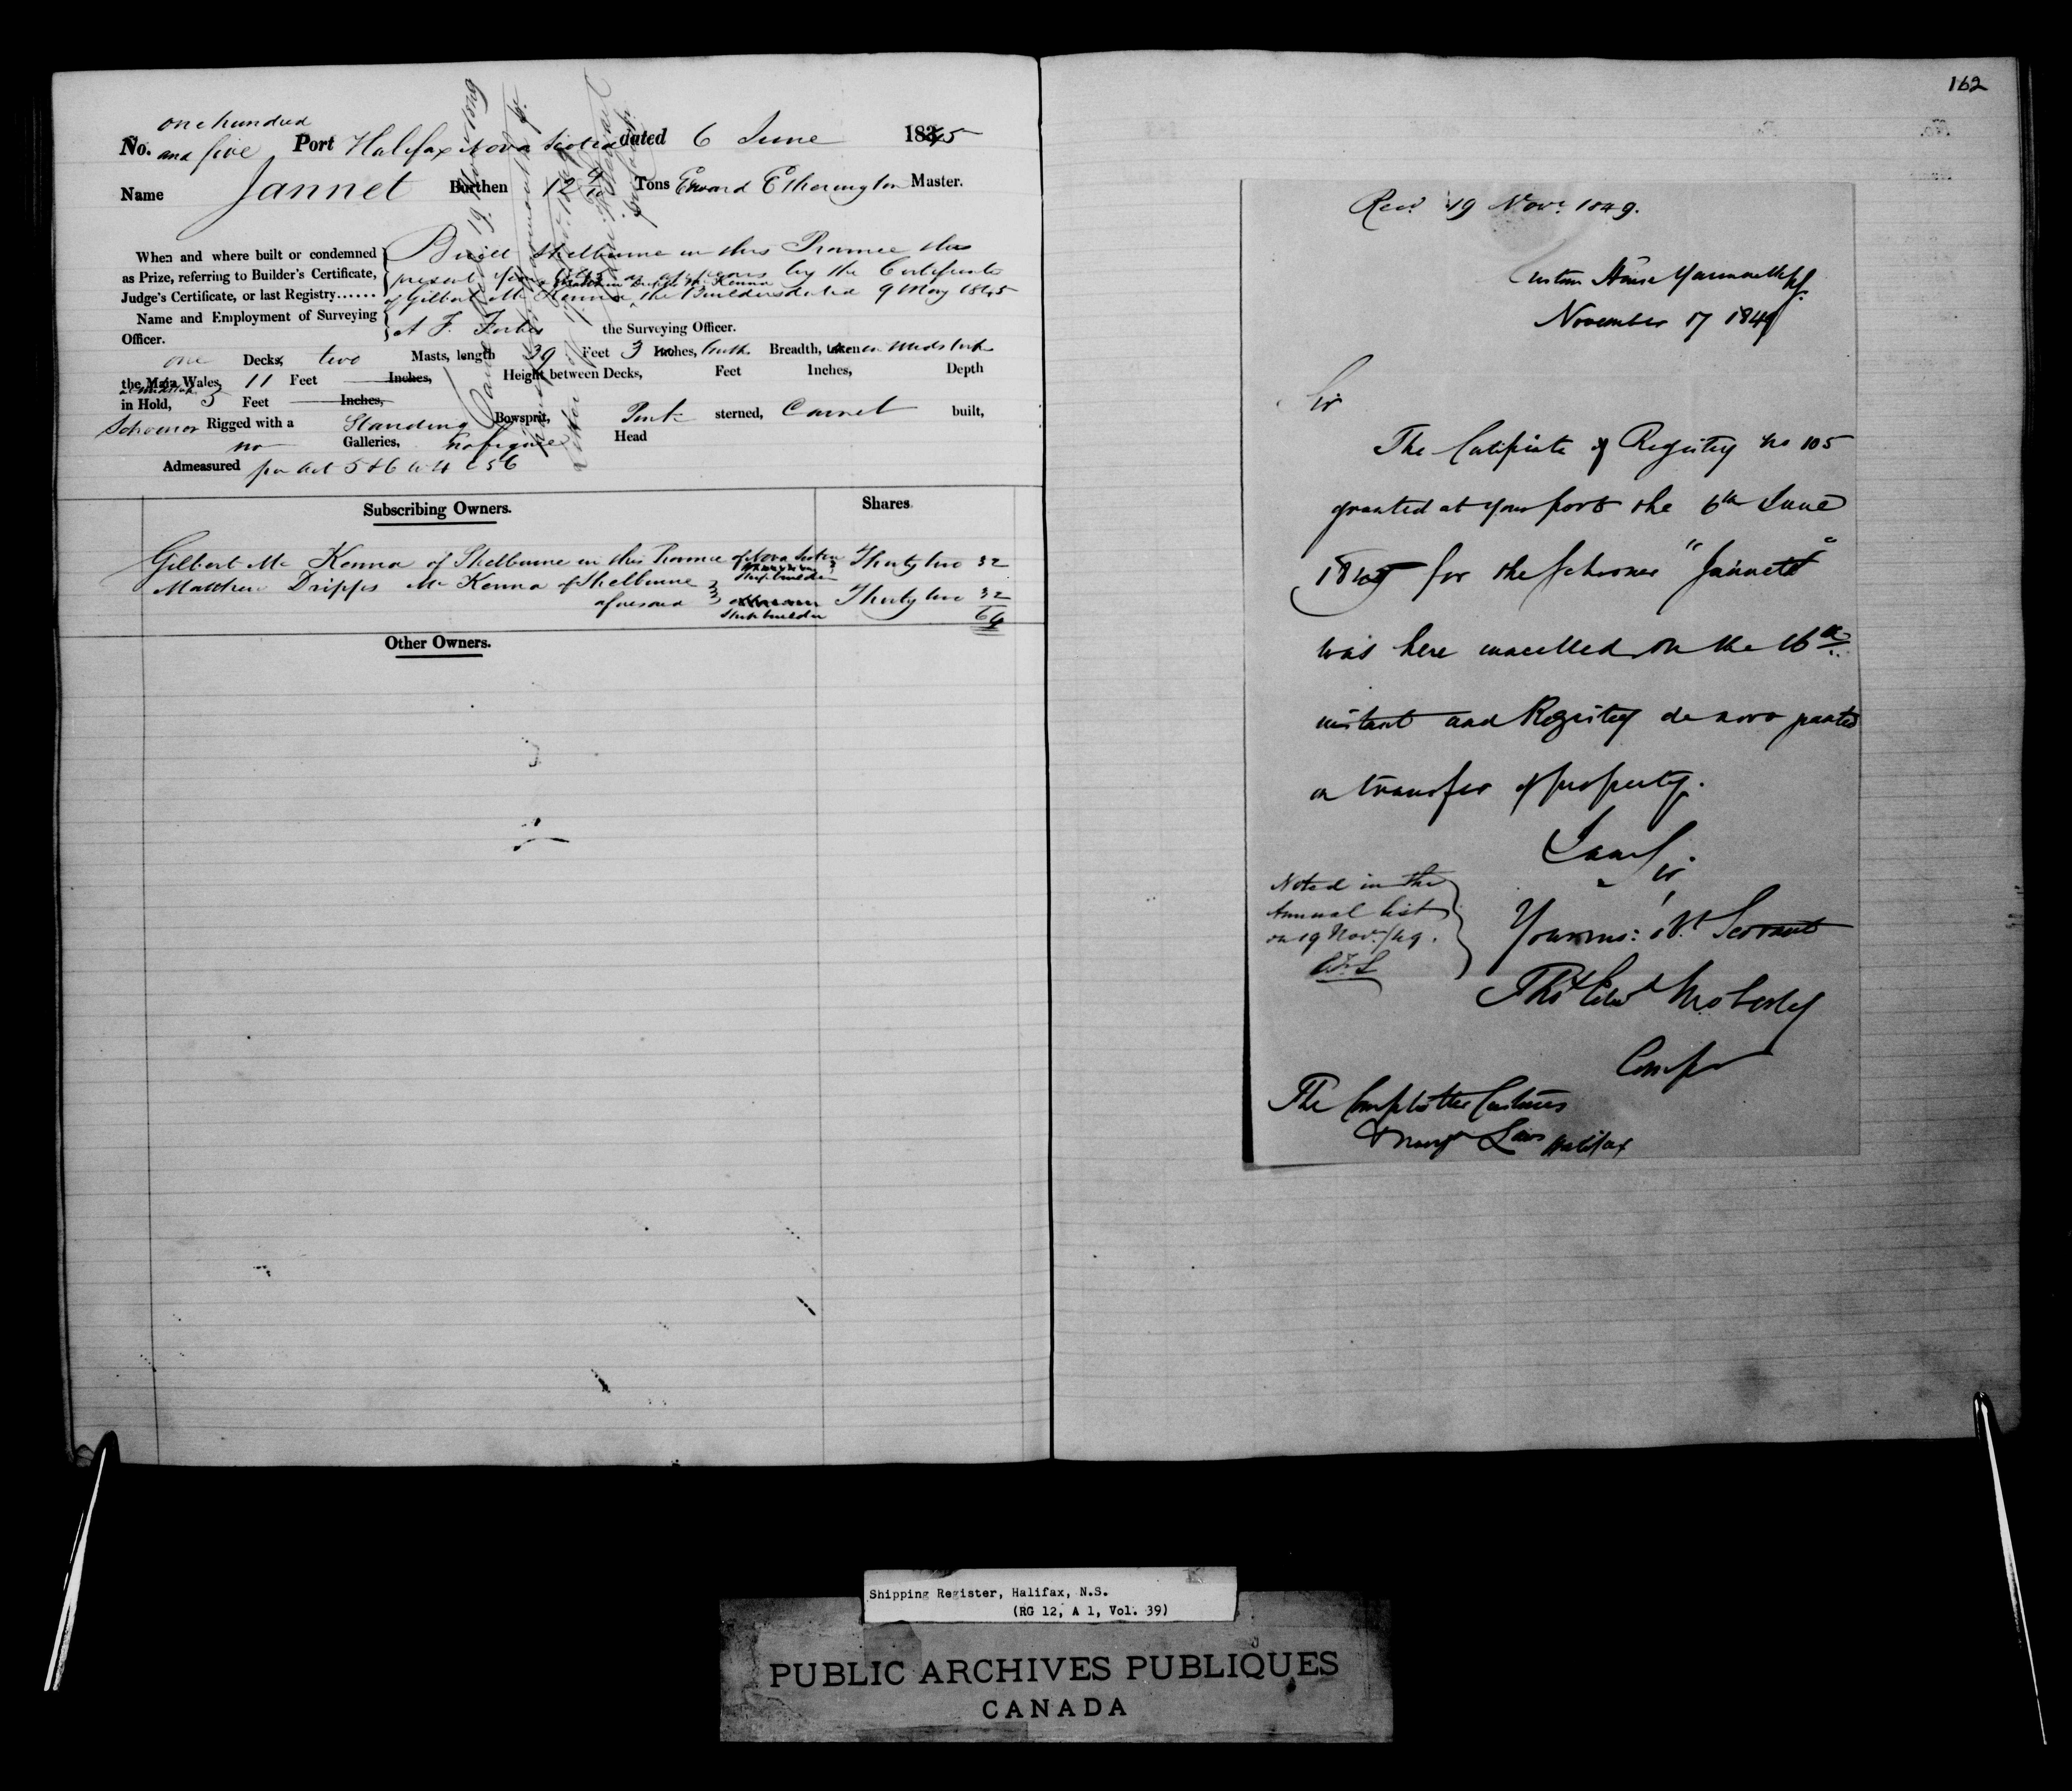 one hundred
No. and five Port Halifax Nova Scotia dated 6 June 1845
Name Jannet Burthen 12 9/10 Tons Edward Etherington Master.
When and where built or condemned
as Prize, referring to Builder's Certificate,
Judge's Certificate, or last Registry......
Built Shelburne in this Province this
present year 1845 as appears by the Certificate
& Matthew Dripps Mc Kenna
of Gilbert Mc Kenna the Builders dated 9 May 1845
Name and Employment of Surveying
Officer.
A F. Forbes the Surveying Officer.
one Decks, two Masts, length 39 Feet 3 Inches, tenths Breadth, taken in Midships
the Main Wales, 11 Feet Inches, Height between Decks, Feet Inches, Depth
at Midships
in Hold, 5 Feet Inches,
Schooner Rigged with a Standing Bowsprit, Pink sterned, Carvel built,
no Galleries, no figure Head
Admeasured per Act 5 & 6 W 4 c 56
Subscribing Owners. Shares.
Gilbert Mc Kenna of Shelburne in this Province of Nova Scotia Thirty two 32
Shipbuilder
Matthew Dripps Mc Kenna of Shelburne
aforesaid Thirty two 32
Shipbuilder 64
Other Owners.
162
Recd. 19 Novr. 1849.
Custom House Yarmouth
November 17 1849
Sir
The Certificate of Registry No 105
granted at your port the 6th June
1845 for the schooner "Jannett"
was here cancelled on the 16th
instant and Registry de novo granted
on transfer of property.
I am Sir
Noted in the
Annual list
on 19 Nov./49.
Your ms: ob.t Servant
Thos Edwd Moberly
Compr
The Comptroller Customs
& Navign Laws Halifax
Shipping Register, Halifax, N.S.
(RG 12, A 1, Vol. 39)
PUBLIC ARCHIVES PUBLIQUES
CANADA